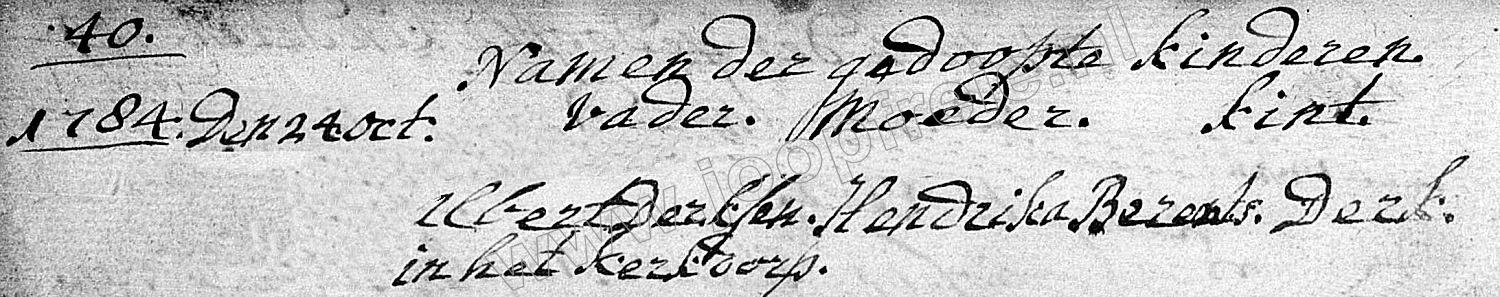 40.
Namen der gedoopte kinderen.
1784. Den 24 Oct. Vader. Moeder. kint.
Albert Derksen. Hendrika Berents. Derk.
in het kerkdorp.